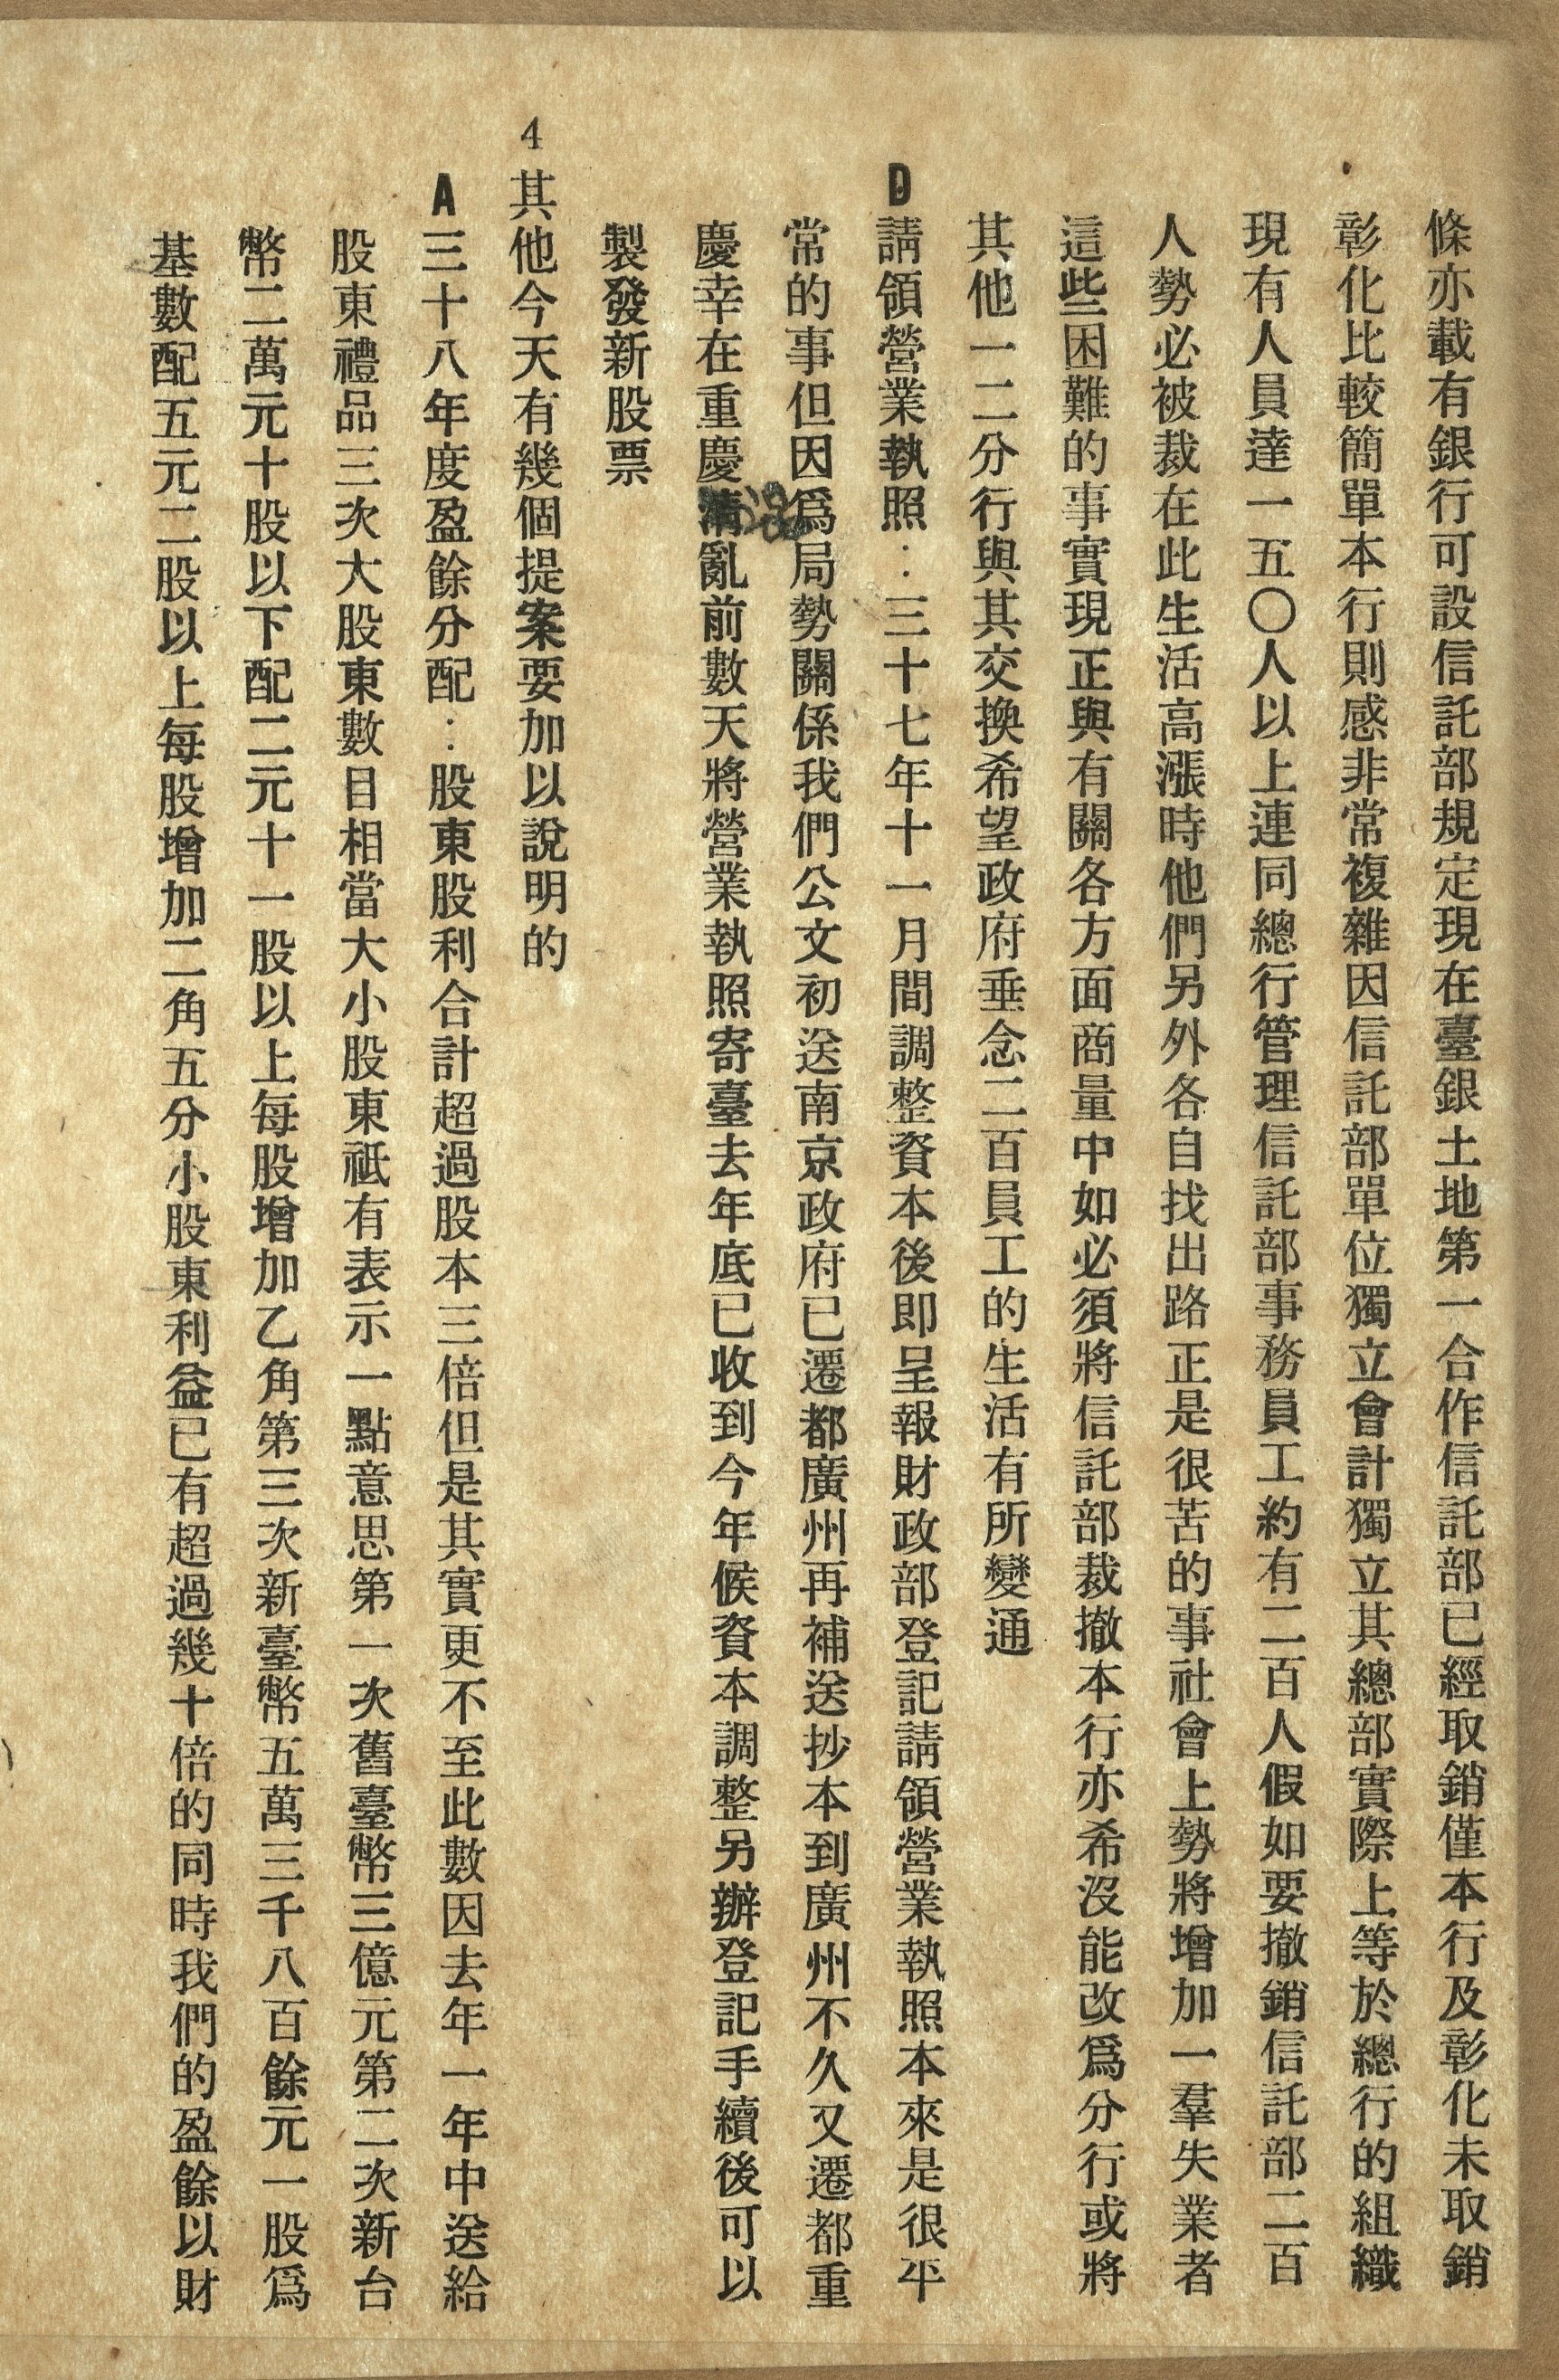 條亦載有銀行可設信託部規定現在臺銀土地第一合作信託部已經取銷僅本行及彰化未取銷
彰化比較簡單本行則感非常複雜因信託部單位獨立會計獨立其總部實際上等於總行的組織
現有人員達一五〇人以上連同總行管理信託部事務員工約有二百人假如要撤銷信託部二百
人勢必被裁在此生活高漲時他們另外各自找出路正是很苦的事社會上勢將增加一羣失業者
這些困難的事實現正與有關各方面商量中如必須將信託部裁撤本行亦希沒能改爲分行或將
其他一二分行與其交換希望政府垂念二百員工的生活有所變通
D請領營業執照：三十七年十一月間調整資本後即呈報財政部登記請領營業執照本來是很平
常的事但因爲局勢關係我們公文初送南京政府已遷都廣州再補送抄本到廣州不久又遷都重
慶幸在重慶混亂前數天將營業執照寄臺去年底已收到今年候資本調整另辦登記手續後可以
製發新股票
4其他今天有幾個提案要加以說明的
A三十八年度盈餘分配：股東股利合計超過股本三倍但是其實更不至此數因去年一年中送給
股東禮品三次大股東數目相當大小股東祗有表示一點意思第一次舊臺幣三億元第二次新台
幣二萬元十股以下配二元十一股以上每股增加乙角第三次新臺幣五萬三千八百餘元一股爲
基數配五元二股以上每股增加二角五分小股東利益已有超過幾十倍的同時我們的盈餘以財